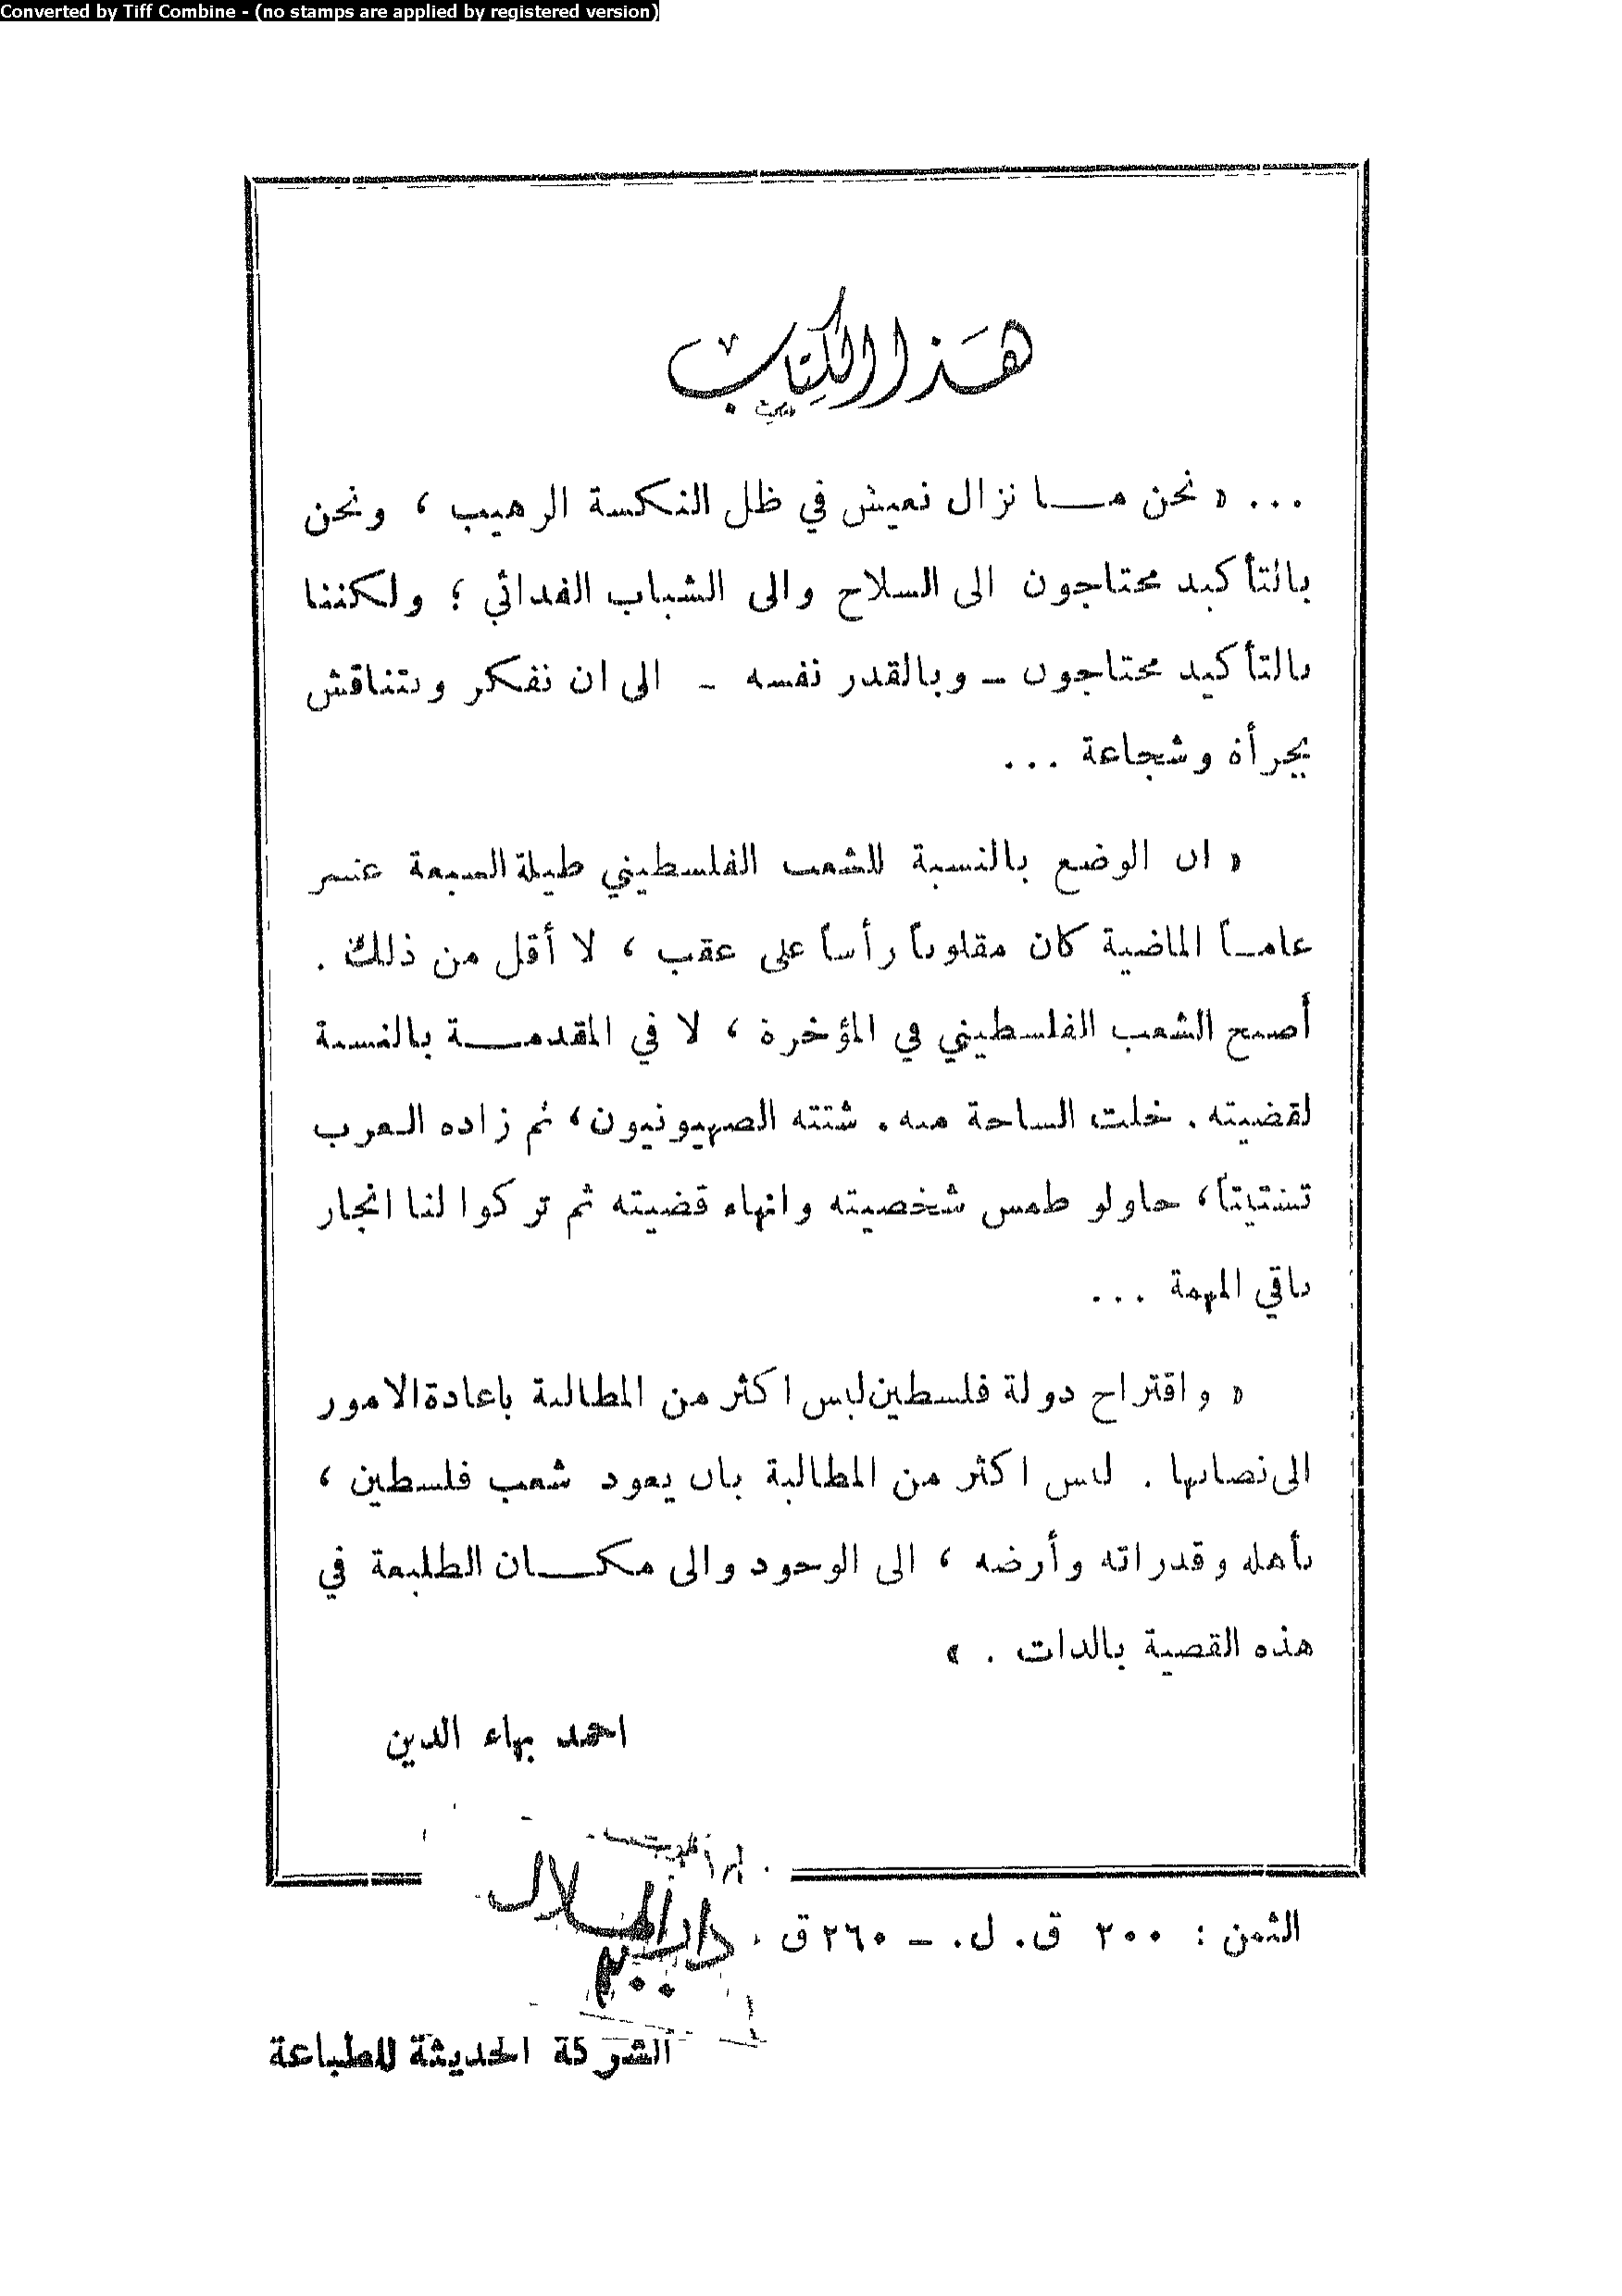 Converted by Tiff Combine - (no stamps are applied by registered version)
هَذا الكِتاب
... « نحن مــا نزال نعيش في ظل النكسة الرهيب ، ونحن
بالتأكيد محتاجون الى السلاح والى الشباب الفدائي ؛ ولكننا
بالتأكيد محتاجون – وبالقدر نفسه – الى ان نفكر ونتناقش
بجرأة وشجاعة ...
« ان الوضع بالنسبة للشعب الفلسطيني طيلة السبعة عشر
عامــاً الماضية كان مقلوباً رأساً على عقب ، لا أقل من ذلك .
أصبح الشعب الفلسطيني في المؤخرة ، لا في المقدمــة بالنسبة
لقضيته . خلت الساحة منه . شتته الصهيونيون ، ثم زاده العرب
تشتيتاً ، حاولو طمس شخصيته وانهاء قضيته ثم تركوا لنا انجاز
باقي المهمة ...
« واقتراح دولة فلسطين ليس اكثر من المطالبة باعادة الامور
الى نصابها . ليس اكثر من المطالبة بان يعود شعب فلسطين ،
بأهله وقدراته وأرضه ، الى الوجود والى مكــان الطليعة في
هذه القضية بالذات . »
احمد بهاء الدين
دار الهلال
الثمن : ٢٠٠ ق. ل. – ٢٦٠ ق .
الشركة الحديثة للطباعة